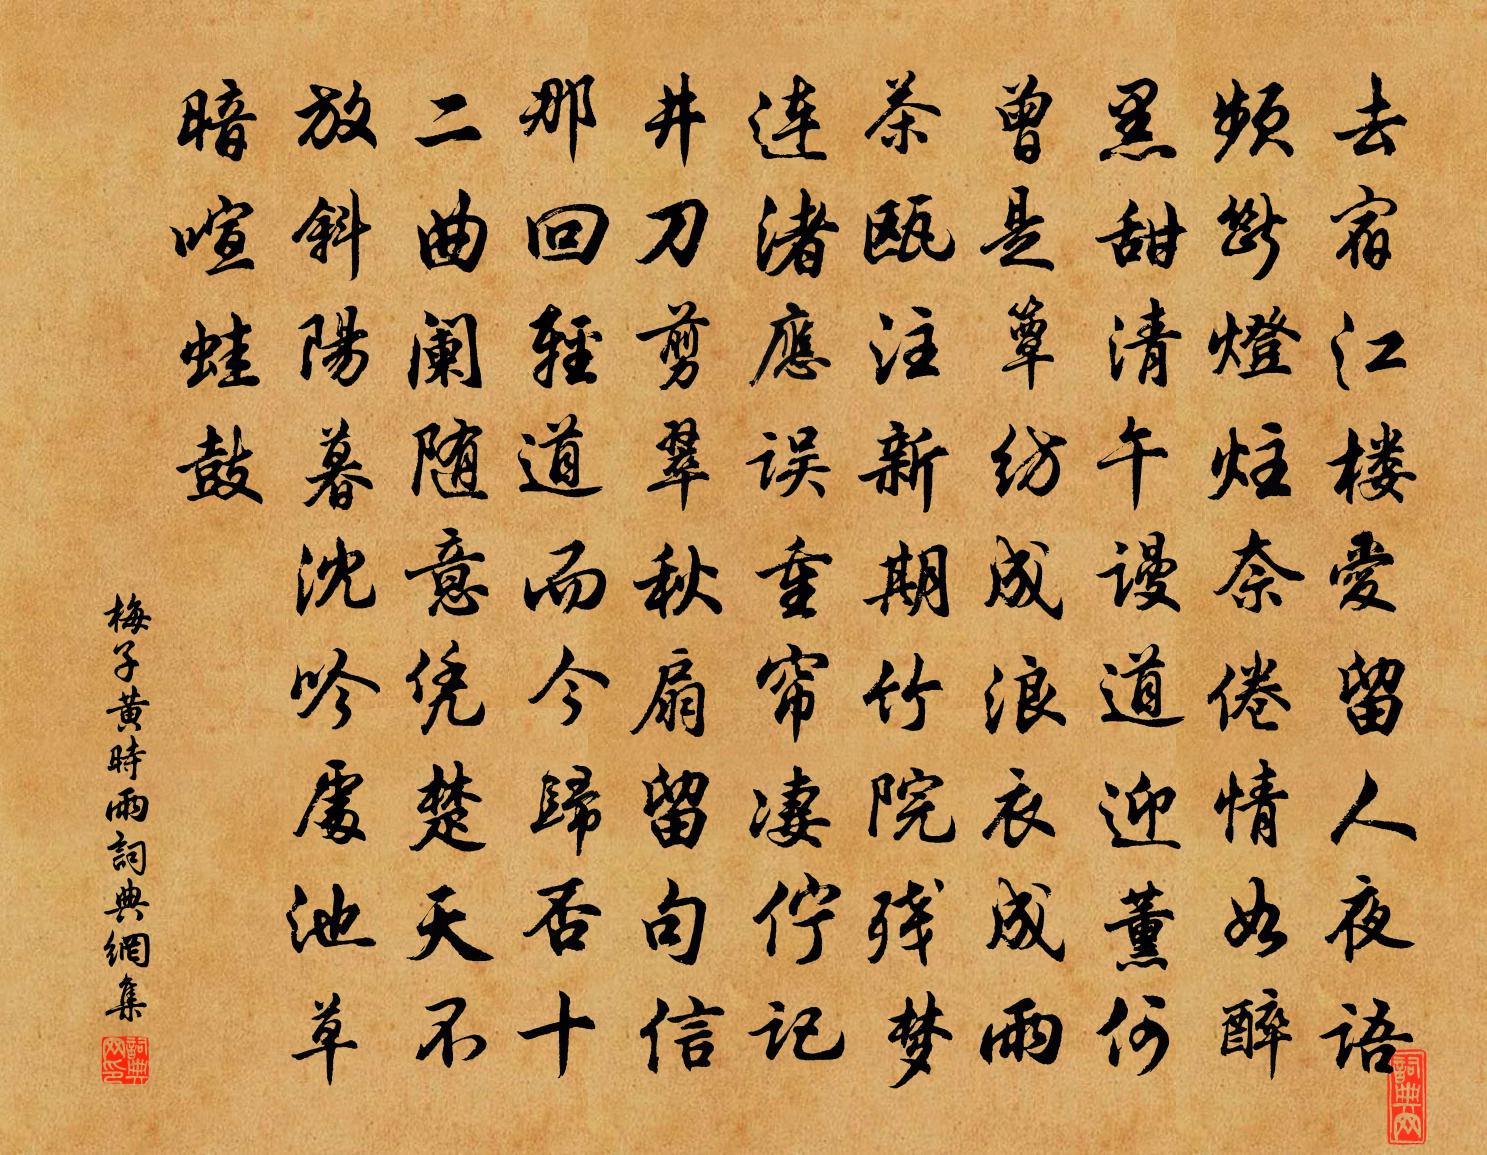 去宿江楼愛留人夜语
頻斷燈炷奈倦情如醉
黑甜清午谩道迎薰何
曾是簟纺成浪衣成雨
茶瓯注新期竹院残梦
連渚應误重帘凄佇记
井刀剪翠秋扇留句信
那回輕道而今歸否十
二曲阑随意凭楚天不
放斜陽暮沈吟處池草
暗喧蛙鼓
梅子黄時雨詞典網集
詞典网印
詞典网